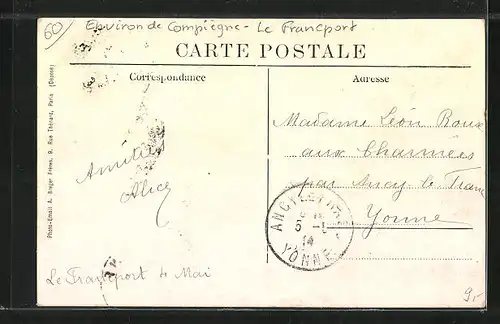 60
Environ de Compiègne - Le Francport
CARTE POSTALE
Correspondance
Adresse
Photo-Email A. Breger Frères, 9, Rue Thénard, Paris
Madame Léon Roux
aux Charmées
par Ancy le Franc
Yonne
Amitiés
Alice
ANCY-LE-FRANC
YONNE
Le Francport 4 Mai
9,-